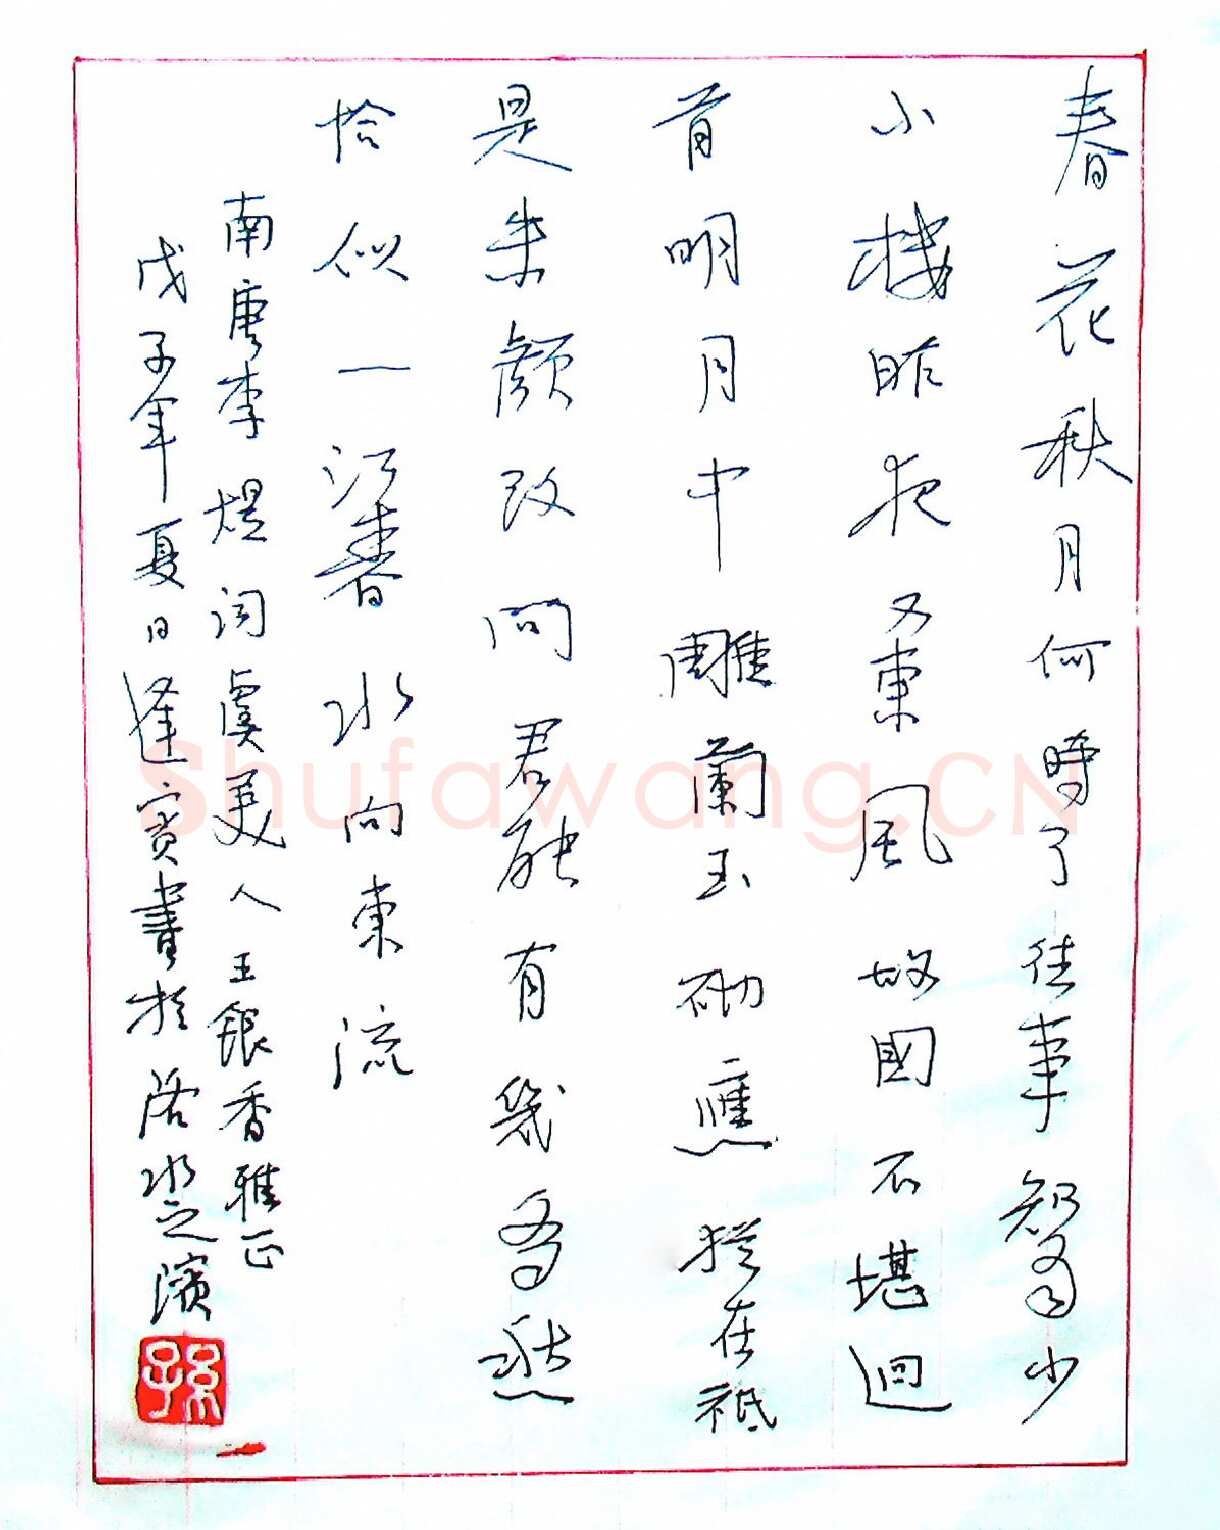 春花秋月何時了往事知多少
小樓昨夜又東風故國不堪迴
首明月中雕蘭玉砌應猶在祗
是朱顏改問君能有幾多愁
恰似一江春水向東流
南唐李煜词虞美人王銀香雅正
戊子年夏日逢賓書於洛水之濱
孫
Shufawang.CN